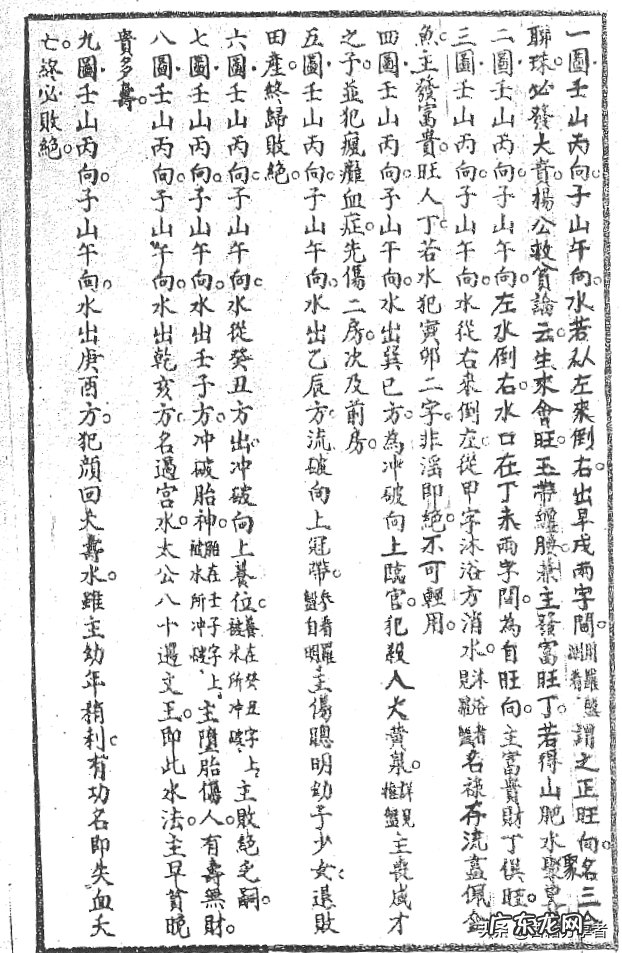 一圖壬山丙向子山午向水若从左來倒右出早戌兩字間用羅盤測看謂之正旺向名三合
聯珠必發大貴楊公救貧論云生來會旺玉帶纏腰兼主發富旺丁若得山肥水聚
二圖壬山丙向子山午向左水倒右水口在丁未兩字間為自旺向主富貴財丁俱旺
三圖壬山丙向子山午向水從右來倒左從甲字沐浴方消水沐浴者見羅盤名祿存流盡佩金
魚主發富貴旺人丁若水犯寅卯二字非淫即絕不可輕用
四圖壬山丙向子山午向水出巽巳方為冲破向上臨官犯殺人大黄泉詳見推盤主喪成才
之子並犯瘋癱血症先傷二房次及前房
五圖壬山丙向子山午向水出乙辰方流破向上冠帶參看羅盤自明主傷聰明幼子少女退敗
田產終歸敗絕
六圖壬山丙向子山午向水從癸丑方出冲破向上養位養在癸丑字上被水所冲破主敗絕乏嗣
七圖壬山丙向子山午向水出壬子方冲破胎神胎在壬子字上被水所冲破主墮胎傷人有壽無財
八圖壬山丙向子山午向水出乾亥方名過宮水太公八十遇文王即此水法主早貧晚
貴多壽
九圖壬山丙向子山午向水出庚酉方犯顏回夭壽水雖主幼年稍利有功名即失血夭
亡終必敗絕
广东龙网